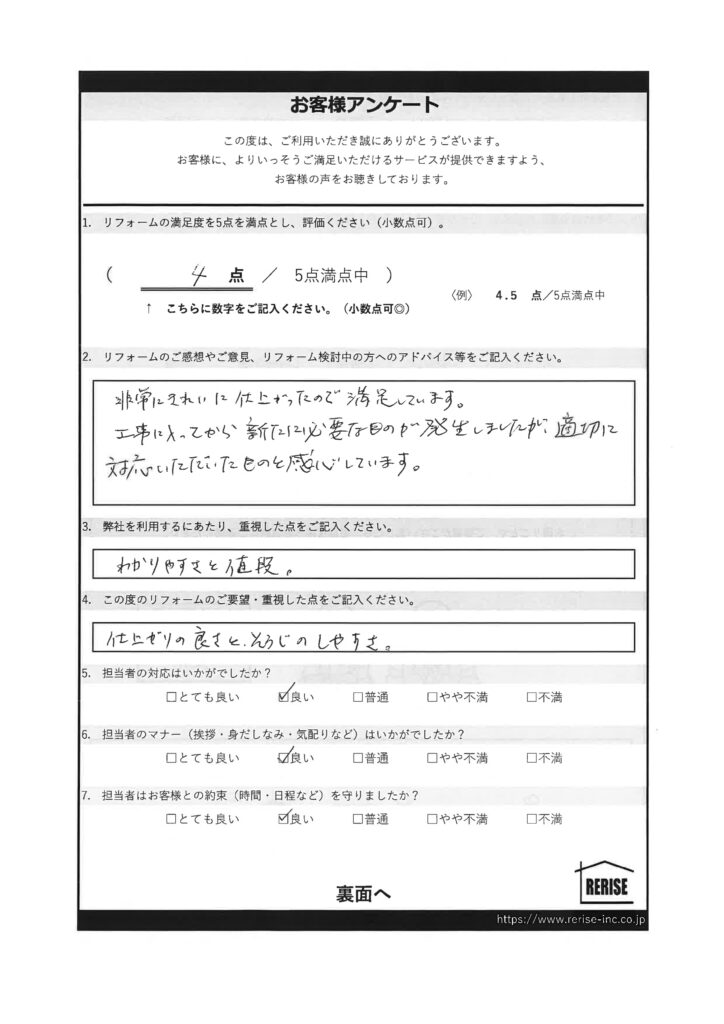 お客様アンケート
この度は、ご利用いただき誠にありがとうございます。
お客様に、よりいっそうご満足いただけるサービスが提供できますよう、
お客様の声をお聴きしております。
1. リフォームの満足度を5点を満点とし、評価ください（小数点可）。
（ 4 点 ／ 5点満点中 ）
〈例〉 4.5 点／5点満点中
↑ こちらに数字をご記入ください。（小数点可◎）
2. リフォームのご感想やご意見、リフォーム検討中の方へのアドバイス等をご記入ください。
非常にきれいに仕上がったので満足しています。
工事に入ってから新たに必要なものが発生しましたが、適切に
対応いただいたものと感心しています。
3. 弊社を利用するにあたり、重視した点をご記入ください。
わかりやすさと値段。
4. この度のリフォームのご要望・重視した点をご記入ください。
仕上がりの良さと、そうじのしやすさ。
5. 担当者の対応はいかがでしたか？
□とても良い ☑良い □普通 □やや不満 □不満
6. 担当者のマナー（挨拶・身だしなみ・気配りなど）はいかがでしたか？
□とても良い ☑良い □普通 □やや不満 □不満
7. 担当者はお客様との約束（時間・日程など）を守りましたか？
□とても良い ☑良い □普通 □やや不満 □不満
裏面へ
RERISE
https://www.rerise-inc.co.jp